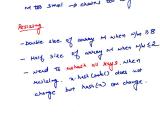 M too small → chains too
Resizing
- Double size of array M when n/m ≥ 8
- Half size of array M when n/m ≤ 2
- need to rehash all keys when
resizing. x.hashCode() does not
change but hash(x) can change.